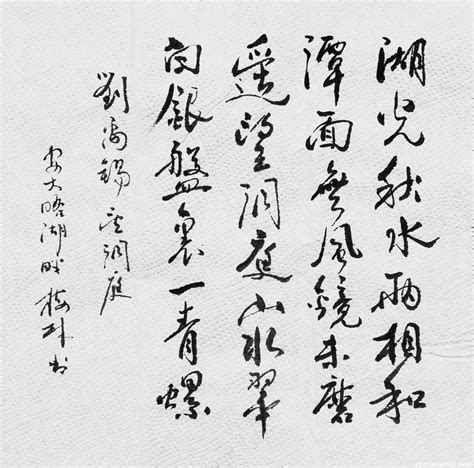 湖光秋水兩相和
潭面無風鏡未磨
遥望洞庭山水翠
白銀盤裏一青螺
劉禹錫望洞庭
安大略湖畔書